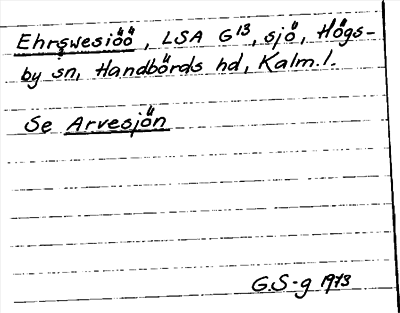 Ehrswesiöö, LSA G13, sjö, Högs-
by sn, Handbörds hd, Kalm.l.
Se Arvesjön
G.S-g 1973